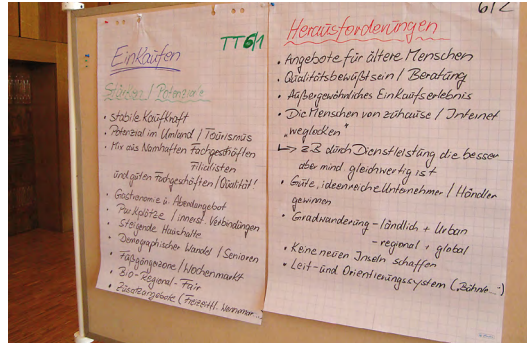 Einkaufen
TT6/1
Stärken / Potenziale
• stabile Kaufkraft
• Potenzial im Umland / Tourismus
• Mix aus Namhaften Fachgeschäften
Filialisten
und guten Fachgeschäften / Qualität!
• Gastronomie u. Abendangebot
• Parkplätze / innerst. Verbindungen
• Steigende Haushalte
• Demographischer Wandel / Senioren
• Fußgängerzone / Wochenmarkt
• Bio-Regional-Fair
• Zusatzangebote (Freizeit
6/2
Herausforderungen
• Angebote für ältere Menschen
• Qualitätsbewußtsein / Beratung
• Außergewöhnliches Einkaufserlebnis
• Die Menschen von zuhause / Internet
„weglocken"
↳ z.B. durch Dienstleistung die besser
aber mind. gleichwertig ist
• Gute, ideenreiche Unternehmer / Händler
gewinnen
• Gradwanderung - ländlich + Urban
- regional + global
• Keine neuen Inseln schaffen
• Leit- und Orientierungssystem („Bühne...")